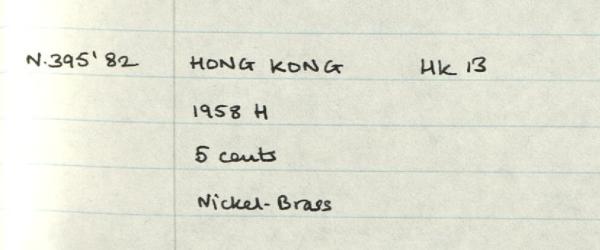 N.395'82 HONG KONG HK 13
1958 H
5 cents
Nickel-Brass